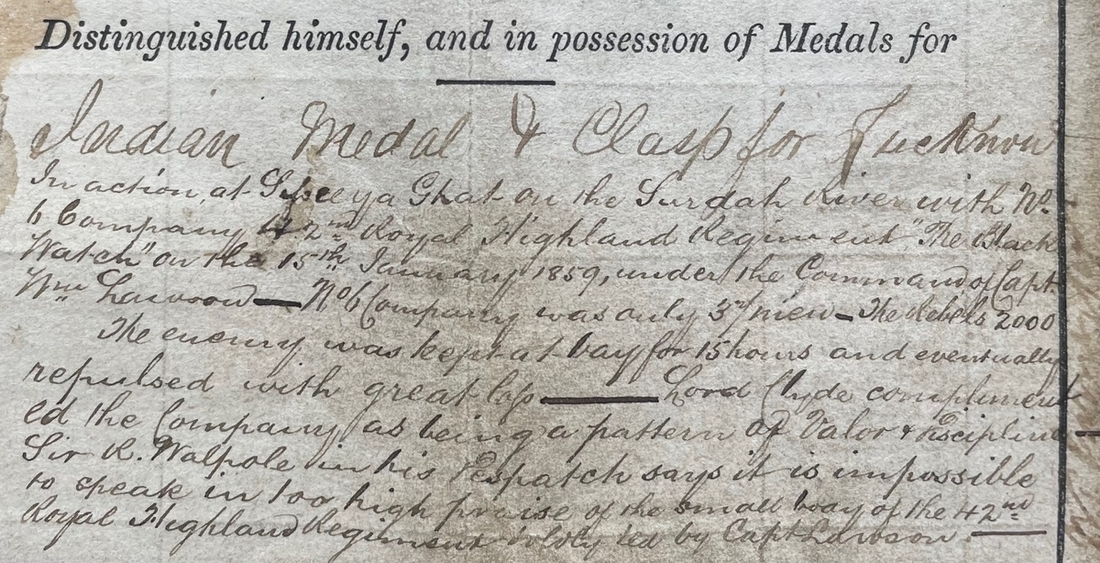 Distinguished himself, and in possession of Medals for
Indian Medal & Clasp for Lucknow
In action, at Ghat on the Surdah River with No.
6 Company 42nd Royal Highland Regiment "The Black
Watch" on the 15th January 1859, under the Command of Capt
Wm Lawson — No 6 Company was only 37 men — The Rebels 2000
The enemy was kept at bay for 15 hours and eventually
repulsed with great loss — Lord Clyde compliment
ed the Company as being a pattern of Valor & Discipline —
Sir R. Walpole in his Despatch says it is impossible
to speak in too high praise of the small body of the 42nd
Royal Highland Regiment led by Capt Lawson. —